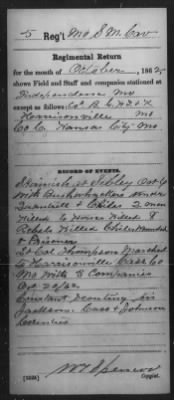 5 Reg't Mo S M Cav
Regimental Return
for the month of October, 1862,
shown Field and Staff and companies stationed at
Independence Mo
except as follows: Co's B, G,
Harrisonville Mo
Co C, Kansas City Mo
RECORD OF EVENTS.
Skirmish at Sibley Oct 6
With Bushwhackers under
Quantrill & Childs 2 men
Killed 2 Horses Killed 8
Rebels Killed Childs Wounded
& Prisoner
Lt Col Thompson Marched
to Harrisonville Cass Co
Mo With 5 Companies
Oct 20/62
Constant Scouting in
Jackson Cass & Johnson
Counties
Spencer
Copyist.